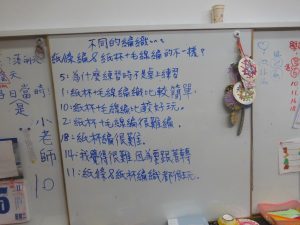 不同的編織。。。
紙條編&紙杯+毛線編的不一樣?
5:為什麼練習時不是桌上練習
1:紙杯+毛線編織比較簡單。
10:紙杯+毛線編比較好玩。
2:紙杯+毛線編很難編。
18:紙杯編很難。
14:我覺得很難,因為要跳著轉
11:紙條&紙杯編織都很好玩。
日當
是
小老師
10